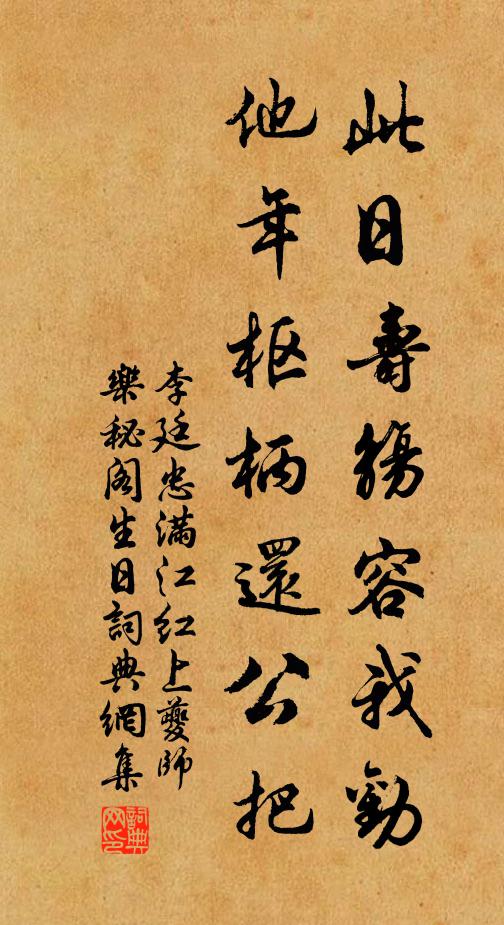 此日壽觴容我勸
他年枢柄還公把
李廷忠满江红上夔師
樂秘阁生日詞典網集
詞典网印